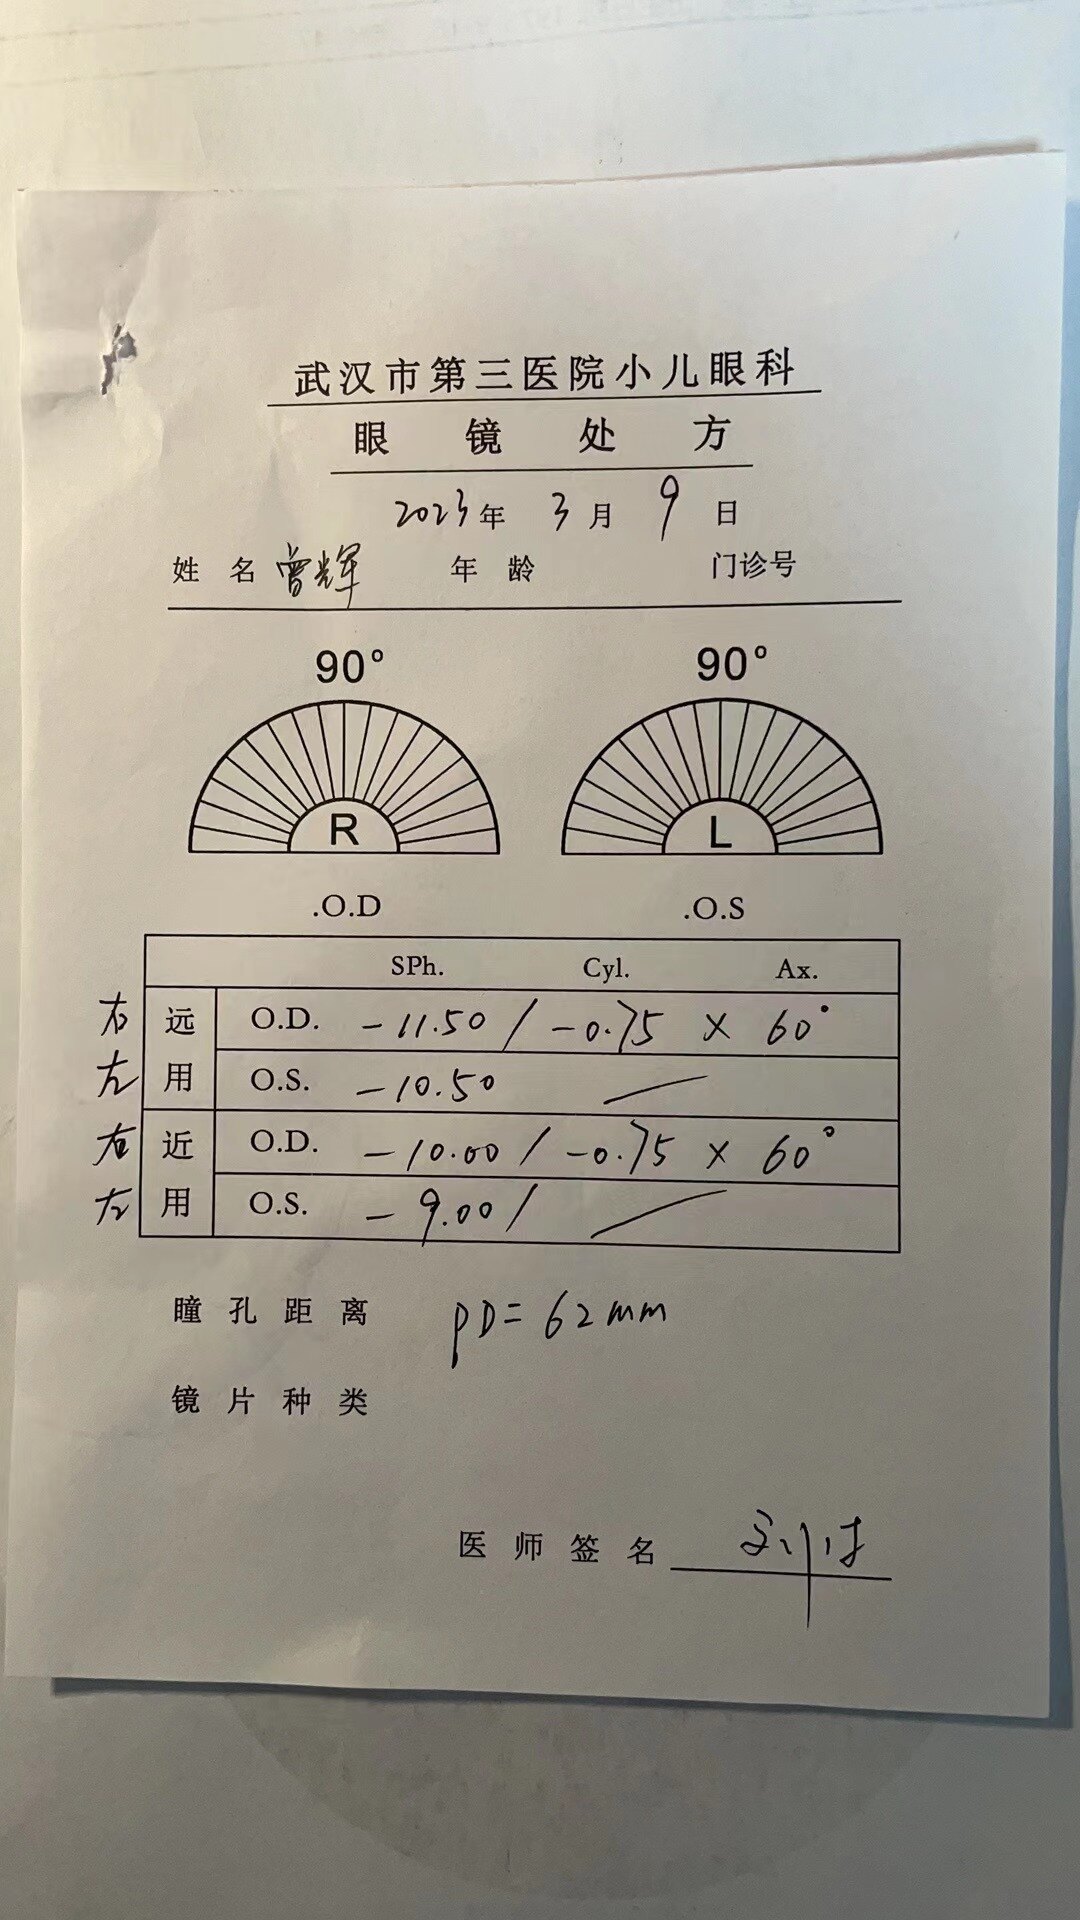 武汉市第三医院小儿眼科
眼镜处方
2023年 3月 9日
姓名 曾辉 年龄 门诊号
90° 90°
R L
.O.D .O.S
SPh. Cyl. Ax.
右 远 O.D. -11.50 / -0.75 × 60°
左 用 O.S. -10.50 /
右 近 O.D. -10.00 / -0.75 × 60°
左 用 O.S. -9.00 / /
瞳孔距离 PD = 62mm
镜片种类
医师签名